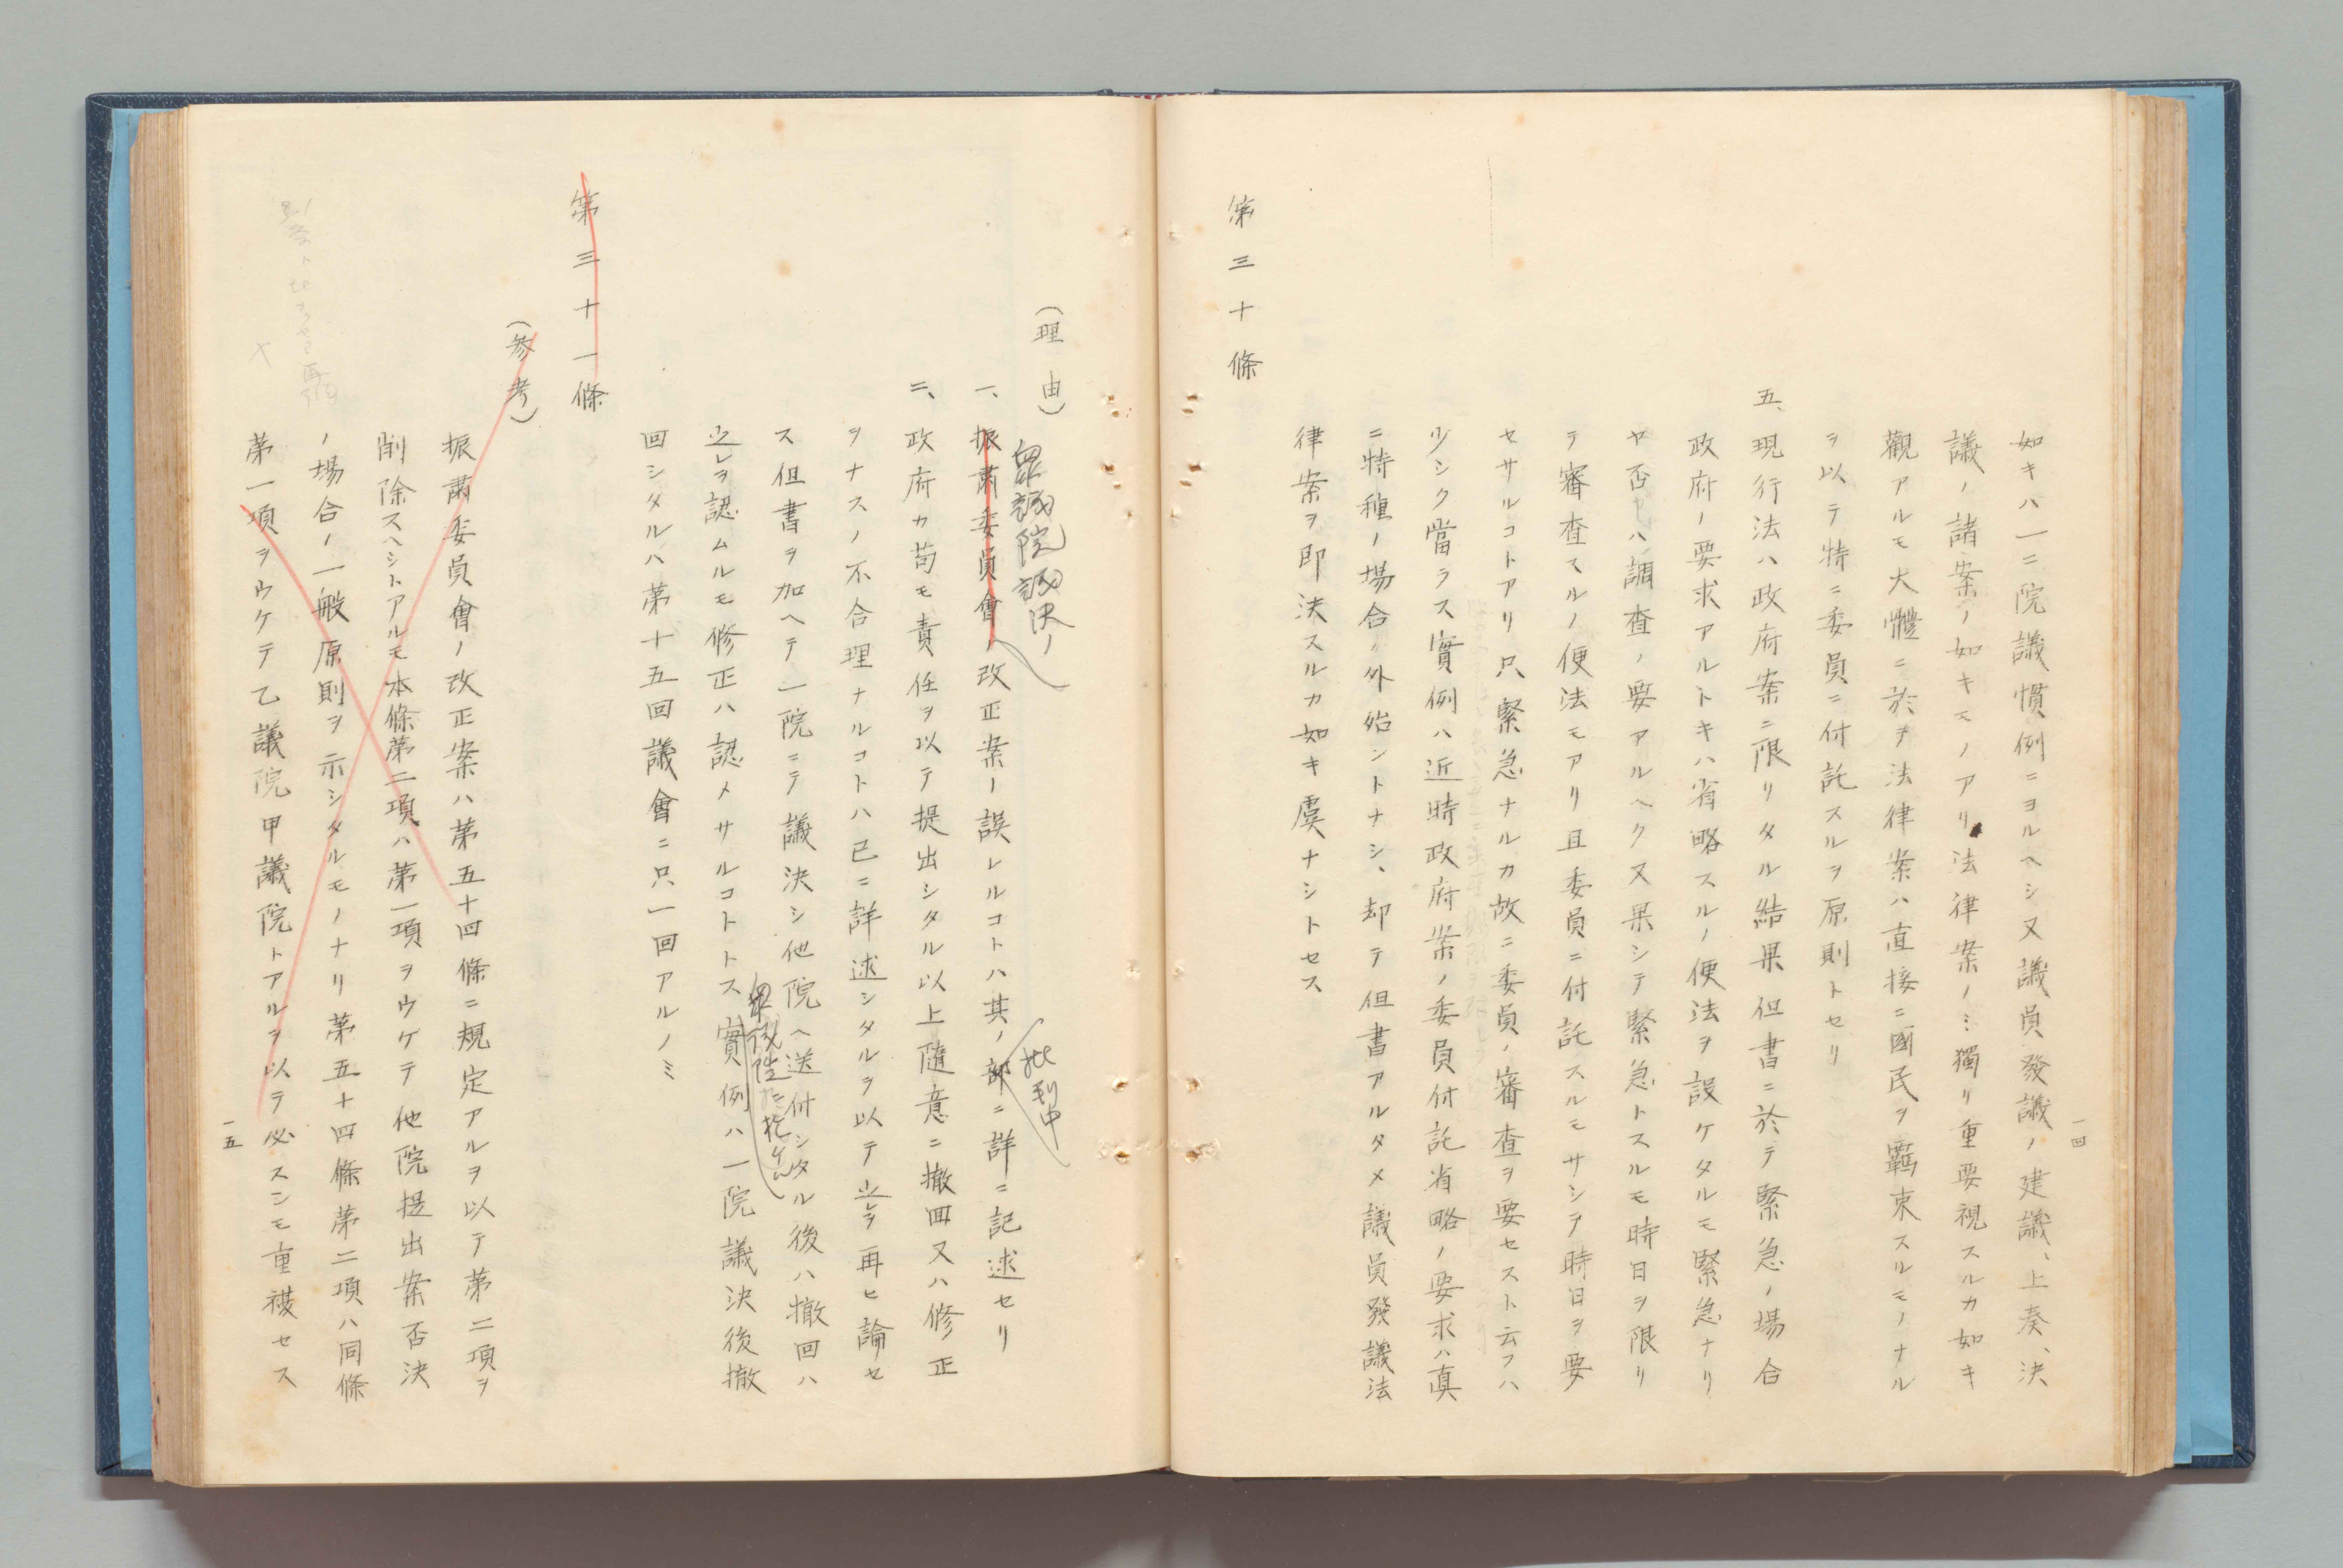 如キハ一ニ院議慣例ニヨルヘシ又議員發議ノ建議、上奏、決
議ノ諸案ノ如キモノアリ法律案ノミ獨リ重要視スルカ如キ
觀アルモ大體ニ於テ法律案ハ直接ニ國民ヲ羈束スルモノナル
ヲ以テ特ニ委員ニ付託スルヲ原則トセリ
五、現行法ハ政府案ニ限リタル結果但書ニ於テ緊急ノ場合
政府ノ要求アルトキハ省略スルノ便法ヲ設ケタルモ緊急ナリ
ヤ否ヤハ調査ノ要アルヘク又果シテ緊急トスルモ時日ヲ限リ
テ審査スルノ便法モアリ且委員ニ付託スルモサシテ時日ヲ要
セサルコトアリ只緊急ナルカ故ニ委員ノ審査ヲ要セスト云フハ
少シク當ラス實例ハ近時政府案ノ委員付託省略ノ要求ハ眞
ニ特種ノ場合ノ外殆ントナシ、却テ但書アルタメ議員發議法
律案ヲ即決スルカ如キ虞ナシトセス
第三十條
一四
(理由)
衆議院議決ノ
一、振肅委員會ノ改正案ノ誤レルコトハ其ノ部ニ詳ニ記述セリ
批判中
二、政府カ苟モ責任ヲ以テ提出シタル以上隨意ニ撤回又ハ修正
ヲナスノ不合理ナルコトハ已ニ詳述シタルヲ以テ之レヲ再ヒ論セ
ス但書ヲ加ヘテ一院ニテ議決シ他院ヘ送付シタル後ハ撤回ハ
之レヲ認ムルモ修正ハ認メサルコトトス實例ハ一院議決後撤
衆議院ニ於ケル
回シタルハ第十五回議會ニ只一回アルノミ
第三十一條
(參考)
振肅委員會ノ改正案ハ第五十四條ニ規定アルヲ以テ第二項ヲ
削除スヘシトアルモ本條第二項ハ第一項ヲウケテ他院提出案否決
ノ場合ノ一般原則ヲ示シタルモノナリ第五十四條第二項ハ同條
第一項ヲウケテ乙議院甲議院トアルヲ以テ必スシモ重複セス
一五